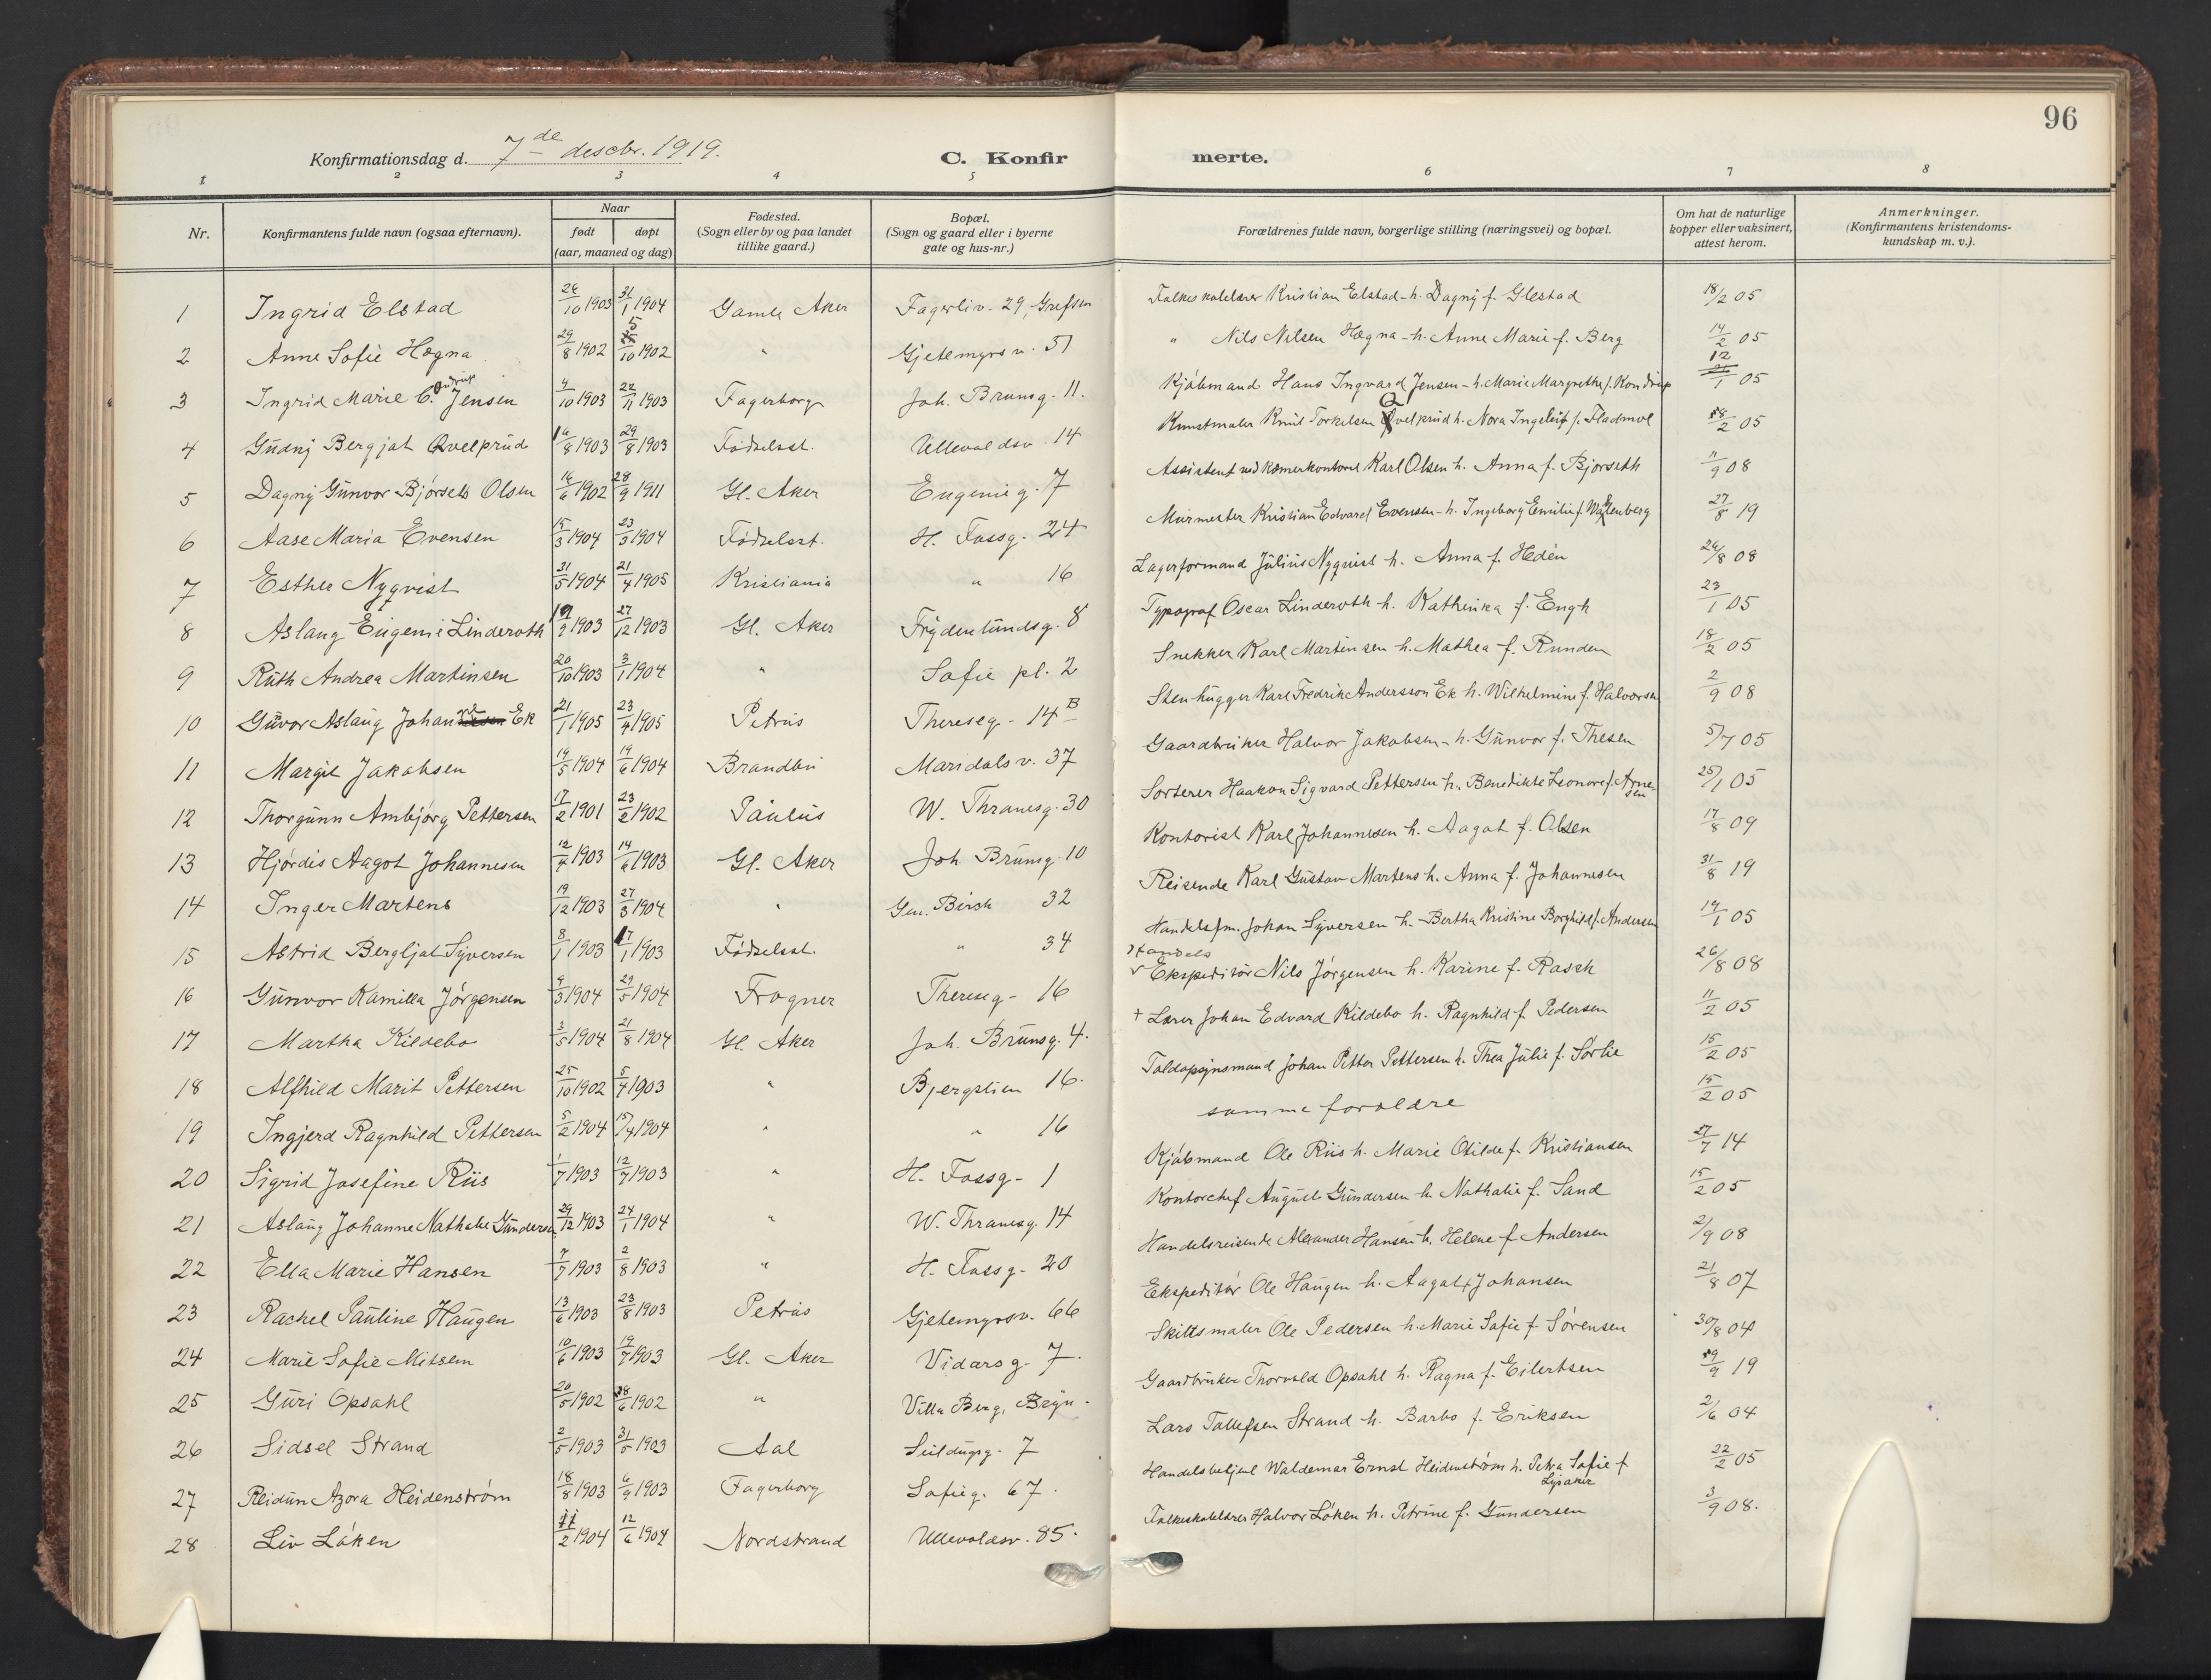 96
Konfirmationsdag d. 7de desebr. 1919. C. Konfir merte.
1 2 3 4 5 6 7 8
Nr. Konfirmantens fulde navn (ogsaa efternavn). Naar født døpt (aar, maaned og dag) Fødested. (Sogn eller by og paa landet tillike gaard.) Bopæl. (Sogn og gaard eller i byerne gate og hus-nr.) Forældrenes fulde navn, borgerlige stilling (næringsvei) og bopæl. Om hat de naturlige kopper eller vaksinert, attest herom. Anmerkninger. (Konfirmantens kristendoms-kundskap m. v.).
1 Ingrid Elstad 26/10 1903 31/1 1904 Gamle Aker Fagerliv. 29, Grefsen Folkeskolelærer Kristian Elstad - h. Dagny f. Glestad 18/2 05
2 Anne Sofie Høgna 29/8 1902 5/10 1902 " Gjetemyrsv. 51 " Nils Nilsen Høgna - h. Anne Marie f. Berg 14/2 05
3 Ingrid Marie C. Jensen 4/10 1903 22/11 1903 Fagerborg Joh. Brunsg. 11. Kjøbmand Hans Ingvard Jensen - h. Marie Margrethe f. Kondrup 12/1 05
4 Gudny Bergjot Qvelprud 16/8 1903 29/8 1903 Fødselsst. Ullevoldsv. 14 Kunstmaler Knut Torkelsen Qvelprud h. Nora Ingeleif f. Fladmol 18/2 05
5 Dagny Gunvor Bjørseth Olsen 16/6 1902 28/9 1911 Gl. Aker Eugenieg. 7 Assistent ved Kæmnerkontoret Karl Olsen h. Anna f. Bjorseth 11/9 08
6 Aase Maria Evensen 15/3 1904 23/3 1904 Fødselsst. H. Fossg. 24 Murmester Kristian Edvard Evensen - h. Ingeborg Emilie f. 27/8 19
7 Esther Nyqvist 31/5 1904 21/4 1905 Kristiania " 16 Lagerformand Julius Nyquist h. Anna f. Hedén 26/8 08
8 Aslaug Eugenie Linderoth 19/9 1903 27/12 1903 Gl. Aker Frydenlundsg. 8 Typograf Oscar Linderoth h. Kathinka f. Engh 23/1 05
9 Ruth Andrea Martinsen 20/10 1903 3/1 1904 " Sofie pl. 2 Snekker Karl Martinsen h. Mathea f. Runden 18/2 05
10 Guvor Aslaug Johanne Ek 21/1 1905 23/4 1905 Petrus Thereseg - 14 B Stenhugger Karl Fredrik Andersson Ek h. Wilhelmine f. Halvorsen 2/9 08
11 Margit Jakobsen 19/5 1904 19/6 1904 Brandbu Maridalsv. 37 Gaardbruker Halvor Jakobsen - h. Gunvor f. Thesen 5/7 05
12 Thorgunn Ambjørg Pettersen 17/2 1901 23/2 1902 Paulus W. Thranesg. 30 Sorterer Haakon Sigvard Pettersen h. Benedikte Leonore f. Arnesen 25/1 05
13 Hjørdis Aagot Johannesen 12/4 1903 14/6 1903 Gl. Aker Joh Brunsg. 10 Kontorist Karl Johannesen h. Aagot f. Olsen 17/8 09
14 Inger Martens 19/12 1903 27/3 1904 " Gen. Birch 32 Reisende Karl Gustav Martens h. Anna f. Johannesen 31/8 19
15 Astrid Bergljot Syversen 8/1 1903 17/1 1903 Fødselsst. " 34 Handelsfm. Johan Syversen h. Bertha Kristine Borghild f. Andersen 19/1 05
16 Gunvor Kamilla Jørgensen 9/3 1904 29/5 1904 Frogner Thereseg - 16 Handels Ekspeditør Nils Jørgensen h. Karine f. Rasch 26/8 08
17 Martha Kildebo 3/5 1904 21/8 1904 Gl. Aker Joh. Brunsg. 4. + Lærer Johan Edvard Kildebo h. Ragnhild f. Pedersen 11/2 05
18 Alfhild Marit Pettersen 25/10 1902 5/4 1903 " Bjergstien 16. Toldopsynsmand Johan Petter Pettersen h. Thea Julie f. Sørlie 15/2 05
19 Ingjerd Ragnhild Pettersen 5/2 1904 15/4 1904 " " 16 samme forældre 15/2 05
20 Sigrid Josefine Riis 1/7 1903 12/7 1903 " H. Fossg - 1 Kjøbmand Ole Riis h. Marie Otilde f. Kristiansen 27/7 14
21 Aslaug Johanne Nathalie Gundersen 29/12 1903 24/1 1904 " W. Thranesg. 14 Kontorchef August Gundersen h. Nathalie f. Sand 15/2 05
22 Ella Marie Hansen 7/7 1903 2/8 1903 " H. Fossg. 20 Handelsreisende Alexander Hansen h. Helene f Andersen 2/9 08
23 Rachel Pauline Haugen 13/6 1903 23/8 1903 Petrus Gjetemyrsv. 66 Ekspeditør Ole Haugen h. Aagot f Johansen 21/8 07
24 Marie Sofie Mitsem 10/6 1903 19/7 1903 Gl. Aker Vidarsg. 7. Skiltsmaler Ole Pedersen h. Marie Sofie f Sørensen 30/8 04
25 Guri Opsahl 20/5 1902 18/6 1902 " Villa Berg, Bryn. Gaardbruker Thorvald Opsahl h. Ragna f. Eilertsen 19/9 19
26 Sidsel Strand 2/5 1903 31/5 1903 Aal Seildugsg. 7 Lars Tollefsen Strand h. Barbo f. Eriksen 2/6 04
27 Reidun Azora Heidenstrøm 18/8 1903 6/9 1903 Fagerborg Sofieg. 67. Handelsbetjent Waldemar Ernst Heidenstrøm h. Petra Sofie f Lysaker 22/2 05
28 Liv Løken 11/2 1904 12/6 1904 Nordstrand Ullevoldsv. 85. Folkeskolelærer Halvor Løken h. Petrine f. Gundersen 3/9 08.